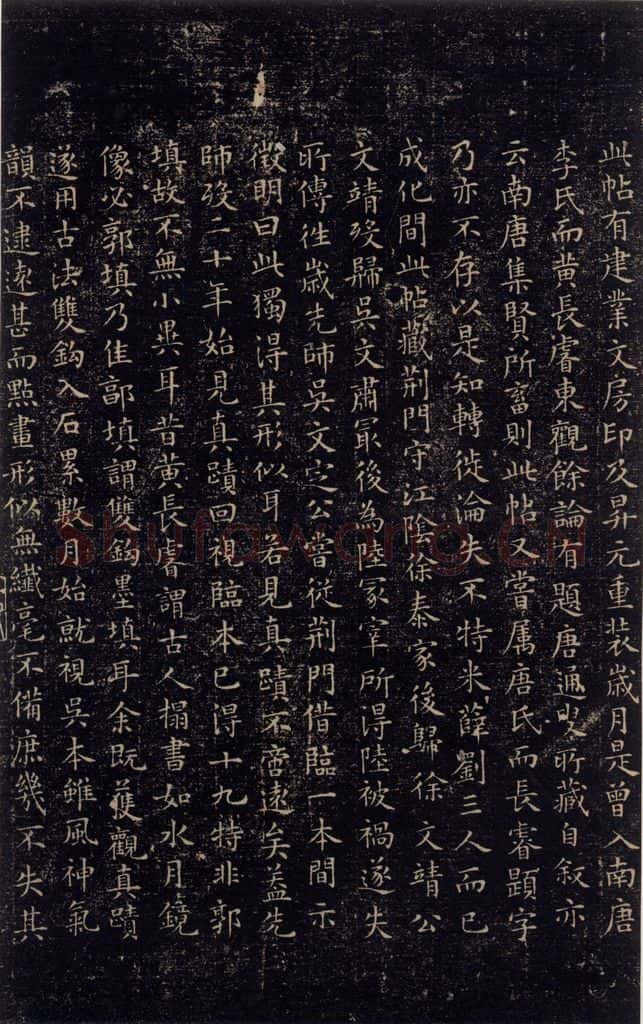 此帖有建業文房印及昇元重裝歲月是曾入南唐
李氏而黄長睿東觀餘論有題唐通叟所藏自叙亦
云南唐集賢所畜則此帖又嘗属唐氏而長睿題字
乃亦不存以是知轉徙淪失不特米薛劉三人而已
成化間此帖藏荆門守江陰徐泰家後歸徐文靖公
文靖殁歸吳文肅冣後為陸冡宰所得陸被禍遂失
所傳往歲先師吳文定公嘗從荆門借臨一本間示
徵明曰此獨得其形似耳若見真蹟不啻遠矣盖先
師殁二十年始見真蹟回視臨本已得十九特非郭
填故不無小異耳昔黄長睿謂古人搨書如水月鏡
像必郭填乃佳郭填謂雙鈎墨填耳余既獲觀真蹟
遂用古法雙鈎入石累數月始就視吳本雖風神氣
韻不逮遠甚而點畫形似無纖毫不備庶幾不失其
Shufawang.CN